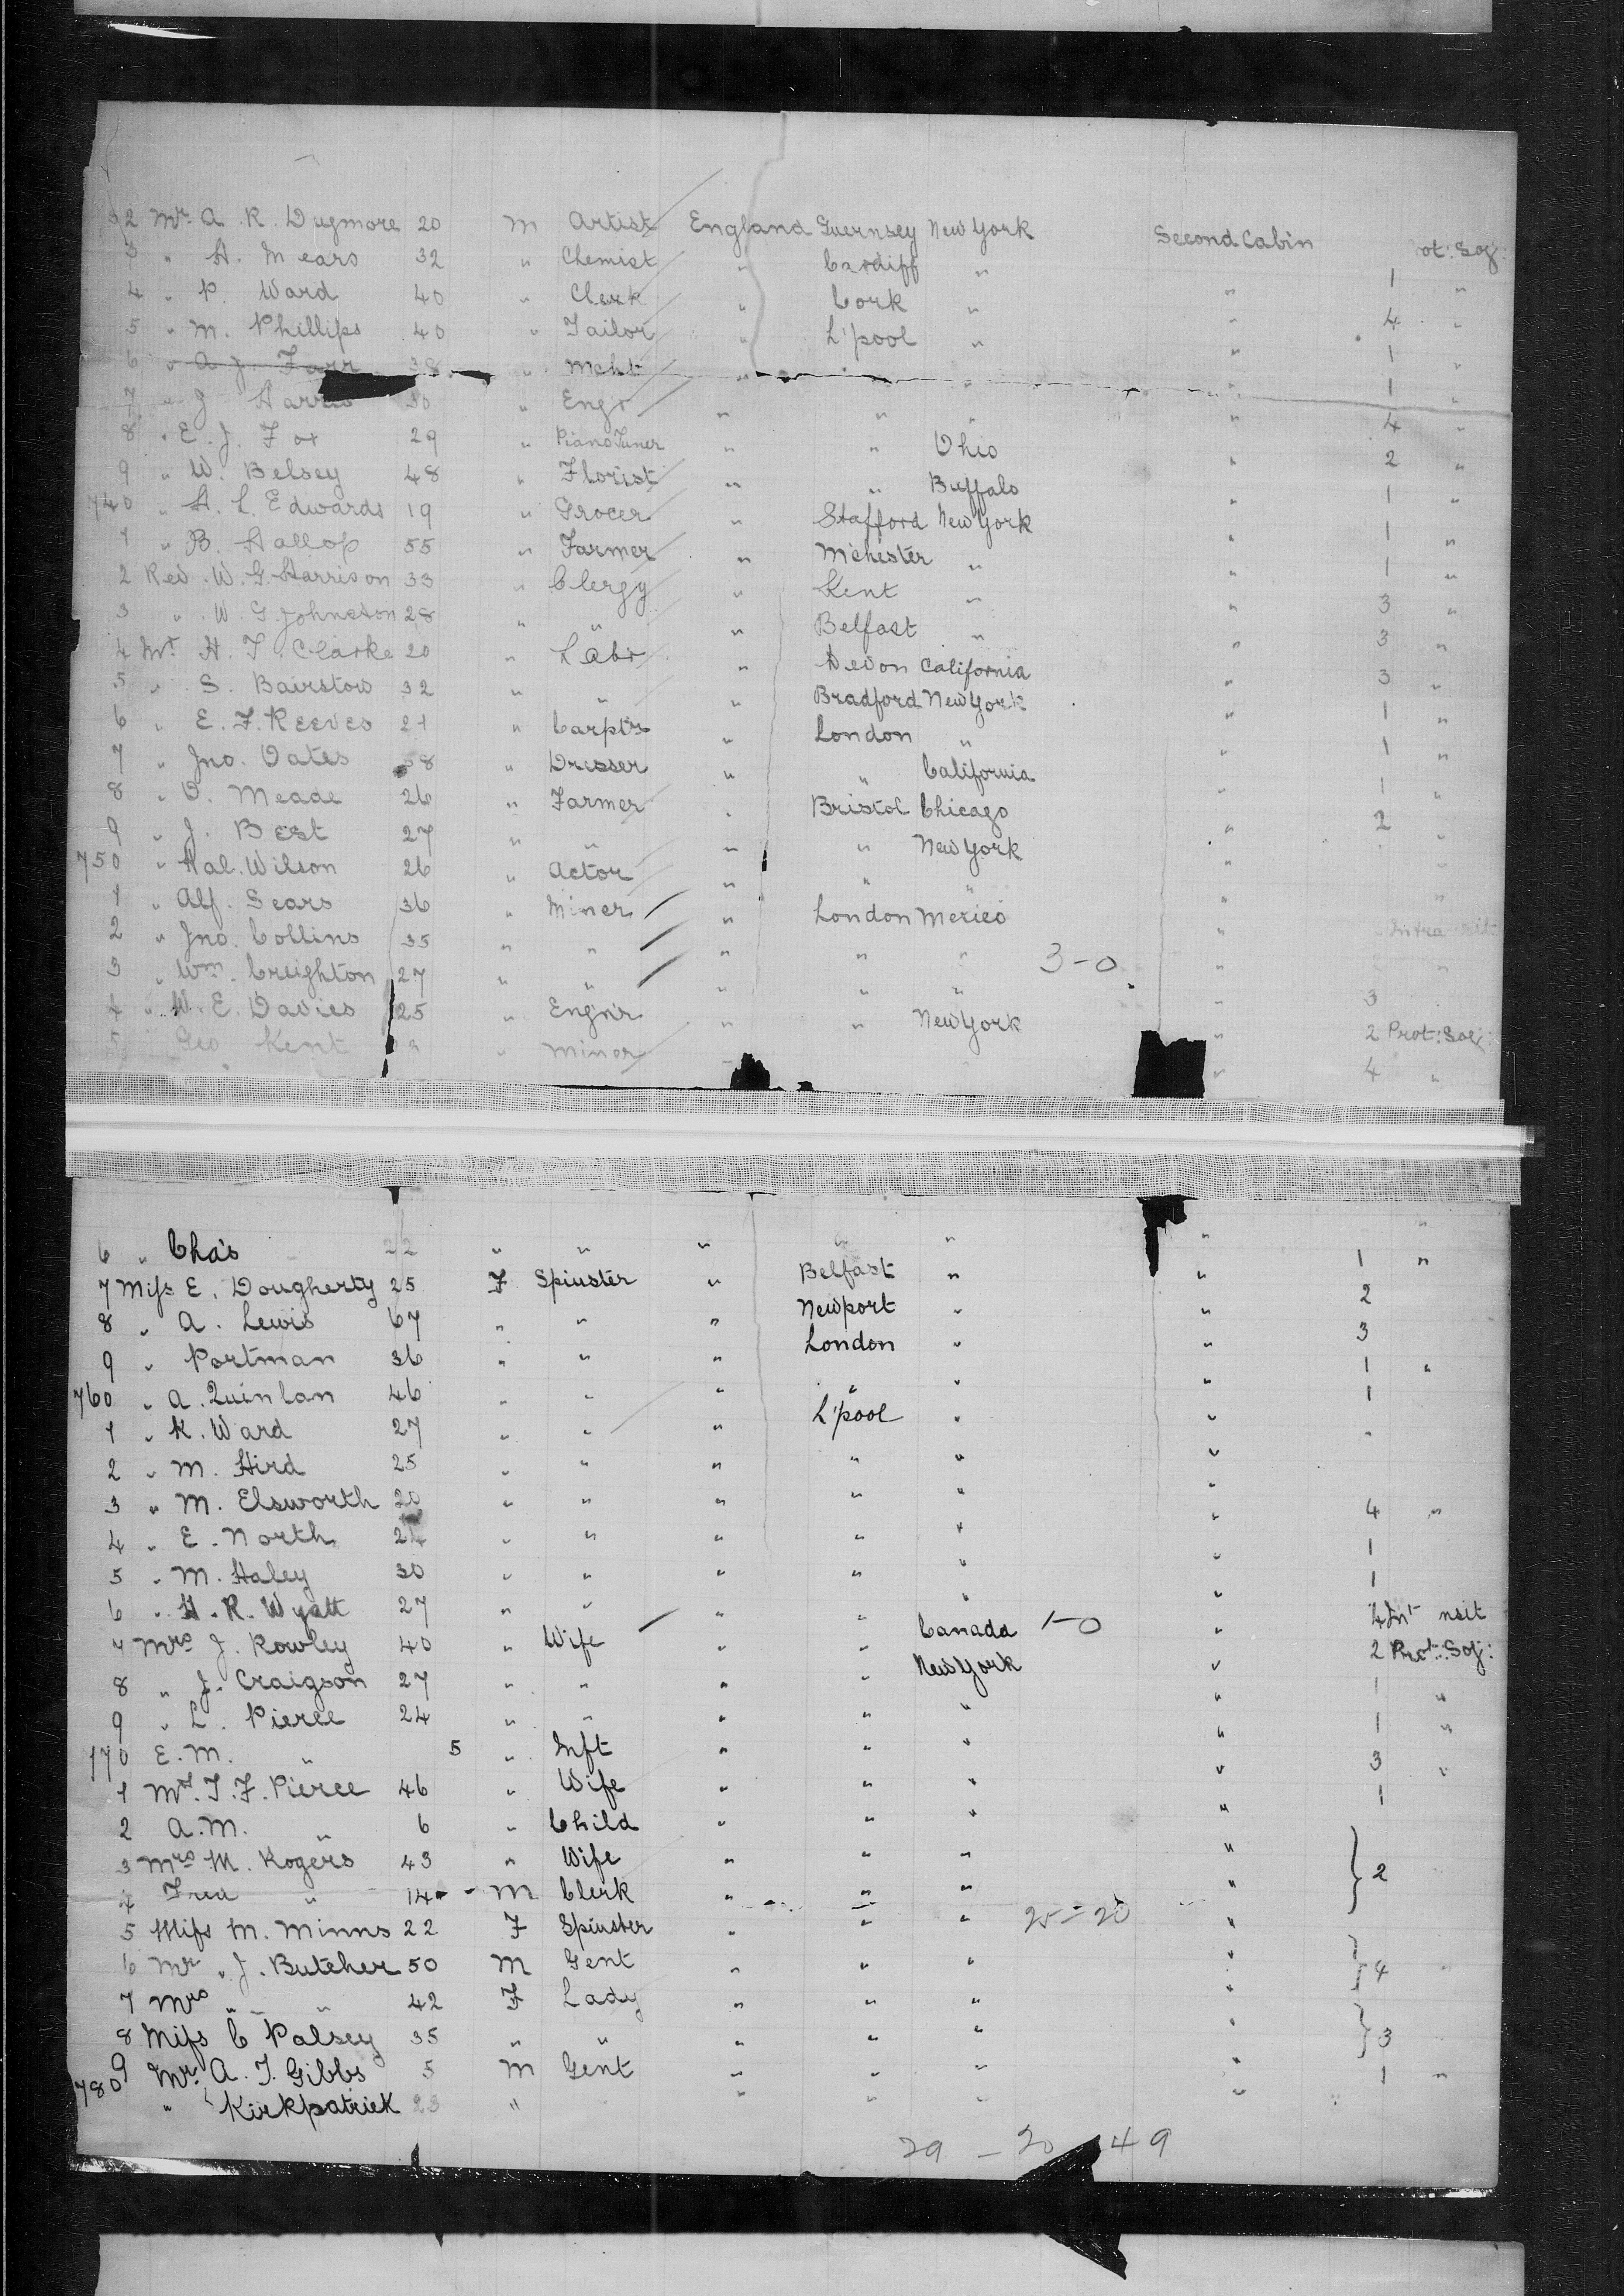 2 Mr. A. R. Dugmore 20 M Artist England Guernsey New York Second Cabin ot: Soj:
3 " H. Mears 32 " Chemist " Cardiff " " 1 "
4 " P. Ward 40 " Clerk " Cork " " 4 "
5 " M. Phillips 40 " Tailor " L'pool " " 1 "
6 " A. J. Farr 38 " Mcht " " " " 1 "
7 " J Harris 30 " Engr " " " " 4 "
8 " E. J. Fox 29 " Piano Tuner " " Ohio " 2 "
9 " W. Belsey 48 " Florist " " Buffalo " 1 "
740 " H. L. Edwards 19 " Grocer " Stafford New York " 1 "
1 " B. Hallop 55 " Farmer " M'chester " " 1 "
2 Rev. W. G. Harrison 33 " Clergy " Kent " " 3 "
3 " W. G. Johnston 28 " " " Belfast " " 3 "
4 Mr. H. T. Clarke 20 " Labr " Devon California " 3 "
5 " S. Bairstow 32 " " " Bradford New York " 1 "
6 " E. F. Reeves 21 " Carpt'r " London " " 1 "
7 " Jno. Oates 38 " Dresser " " California " 1 "
8 " O. Meade 26 " Farmer " Bristol Chicago " 2 "
9 " J. Best 27 " " " " New York " "
750 " Hal. Wilson 26 " Actor " " " " "
1 " Alf. Sears 36 " Miner " London Mexico "
2 " Jno. Collins 35 " " " " " 3-0 "
3 " Wm. Creighton 27 " " " " " " 3
4 " W. E. Davies 25 " Engn'r " " New York " 2 Prot: Soj:
5 Geo Kent " Minor " " 4 "
6 " Cha's 22 " " " " " " "
7 Miss E. Dougherty 25 F Spinster " Belfast " " 1 "
8 " A. Lewis 67 " " " Newport " " 2
9 " Portman 36 " " " London " " 3
760 " A. Quinlan 46 " " " " " " 1 "
1 " K. Ward 27 " " " L'pool " " 1
2 " M. Hird 25 " " " " " " "
3 " M. Elsworth 20 " " " " " "
4 " E. North 24 " " " " " " 4 "
5 " M. Haley 30 " " " " " " 1
6 " H. R. Wyatt 27 " " " " " " 1
7 Mrs J. Rowley 40 " Wife " " Canada 1-0 " 4 Int nsit
8 " J. Craigson 27 " " " " New York " 2 Prot: Soj:
9 " L. Pierce 24 " " " " " " 1 "
770 E. M. " 5 " Inft " " " " 1 "
1 Mrs. T. F. Pierce 46 " Wife " " " " 3 "
2 A. M. " 6 " Child " " " " 1
3 Mrs M. Rogers 43 " Wife " " " "
4 Fred " 14 M Clerk " " " " 2
5 Miss M. Minns 22 F Spinster " " " 25-20 "
6 Mr " J. Butcher 50 M Gent " " " " 4 "
7 Mrs " " 42 F Lady " " " "
8 Miss C Palsey 35 " " " " " " 3
9 Mr. A. T. Gibbs 5 M Gent " " " " 1 "
780 " Kirkpatrick 23 " " " " "
29 - 20 49